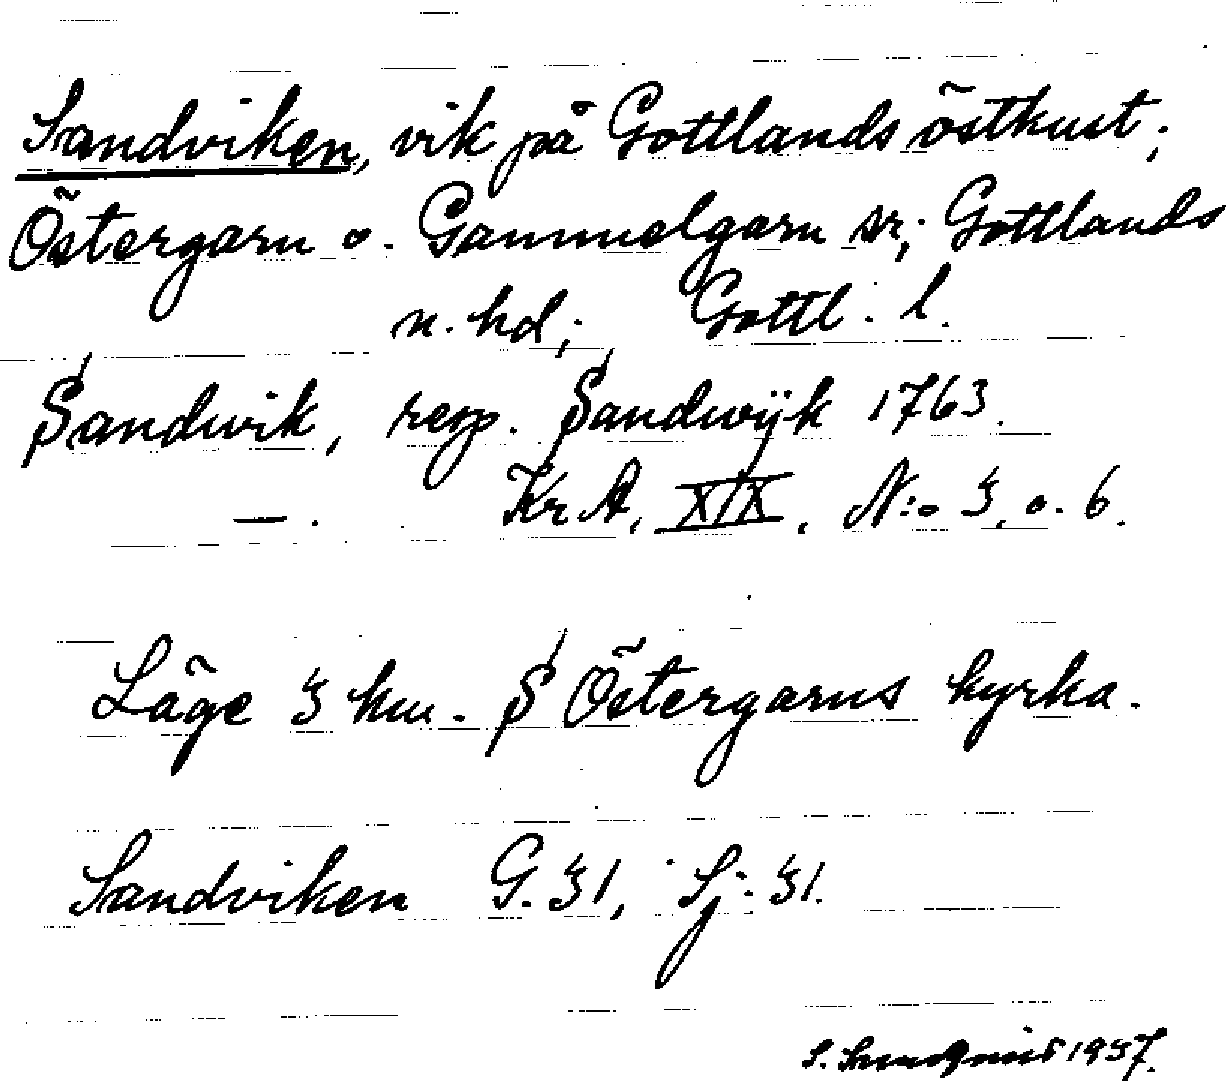 Sandviken, vik på Gottlands östkust;
Östergarn o. Gammelgarn sr; Gottlands
n. hd; Gottl. l.
Sandwik, resp. Sandwÿk 1763.
— . Kr A, XIX, N:o 3, o. 6.
Läge 3 km. S Östergarns kyrka.
Sandviken G. 31, Sj. 31.
S. 1937.